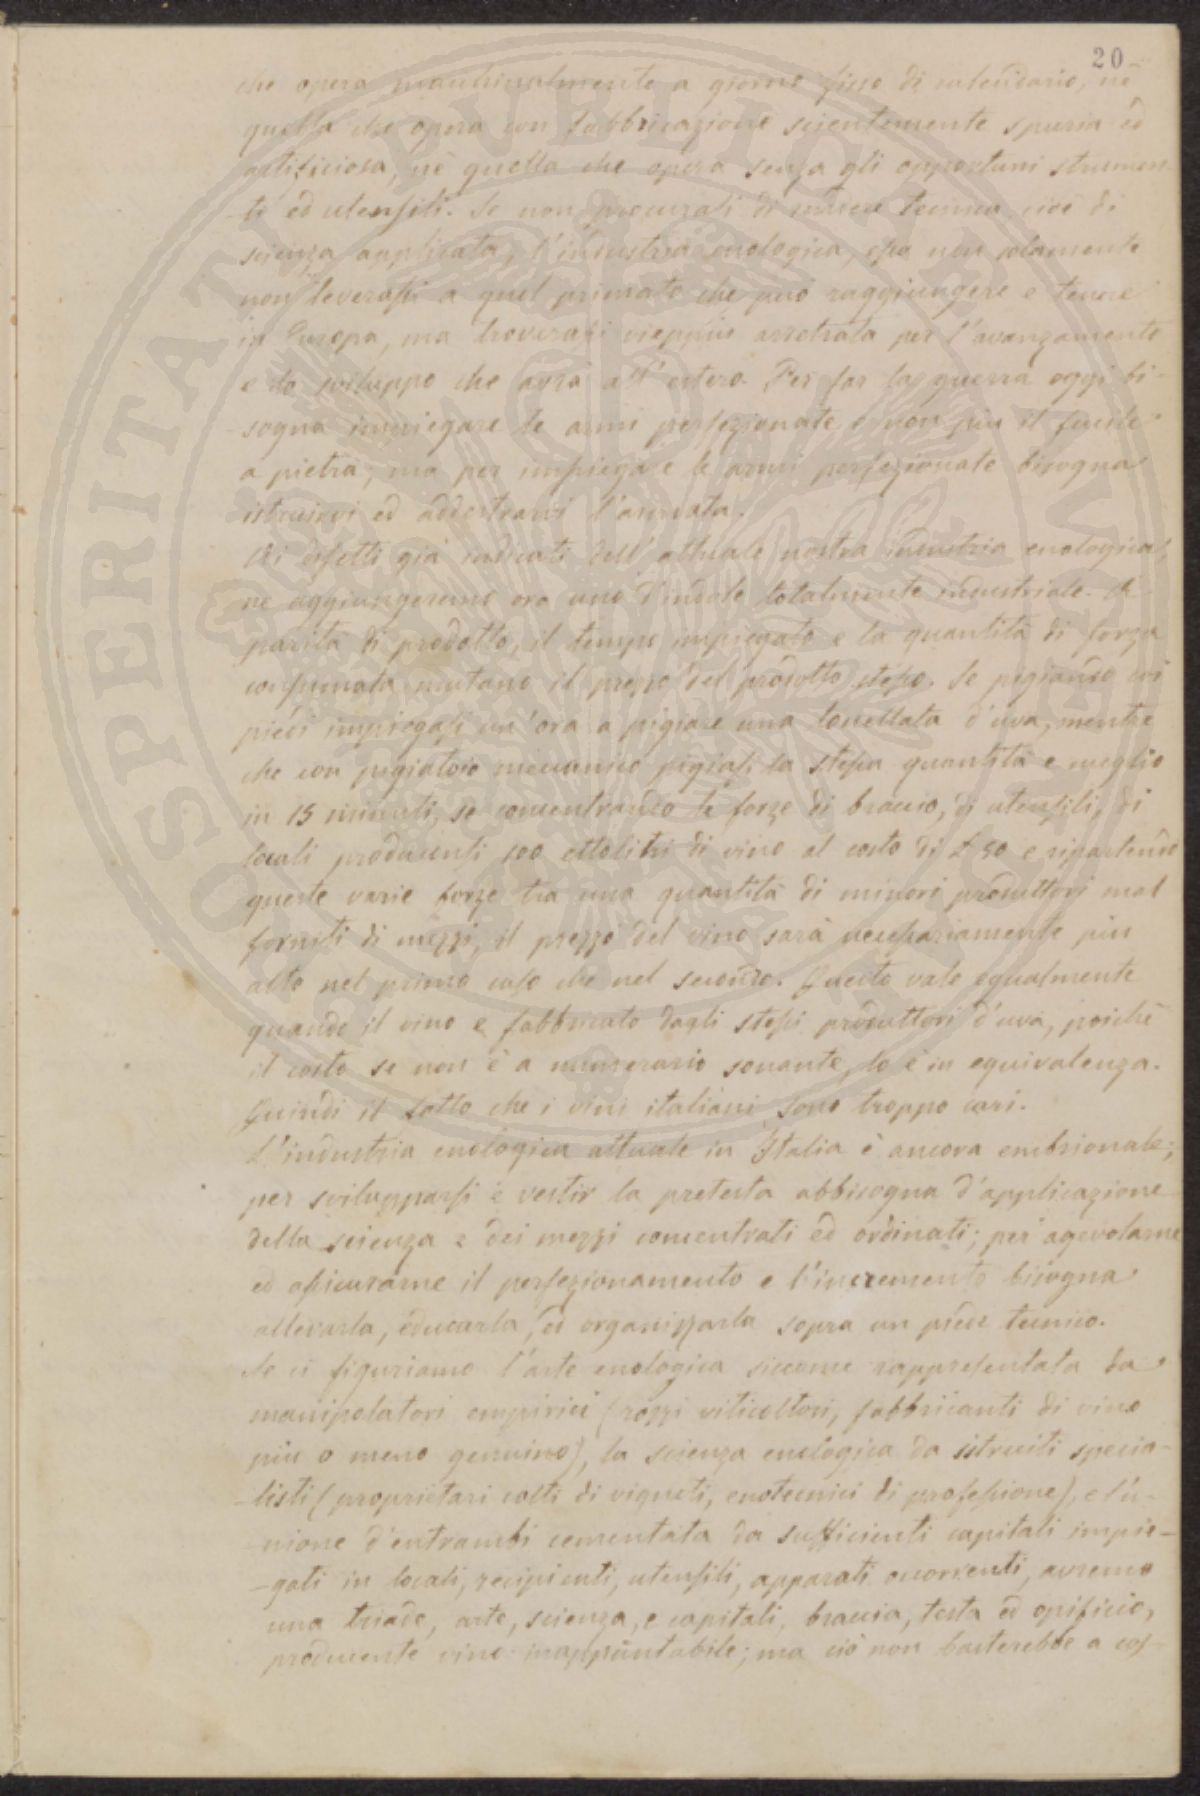 20
che opera macchinalmente a giorno fisso di calendario, nè
quella che opera con fabbricazione scientemente spuria ed
artificiosa, nè quella che opera senza gli opportuni strumen-
-ti ed utensili. Se non procurasi di tecnica, cioè di
scienza applicata, l'industria enologica, essa non solamente
non leverassi a quel primato che può raggiungere e tenere
in Europa, ma troverassi vieppiù arretrata per l'avanzamento
e lo sviluppo che avrà all'estero. Per far la guerra oggi bi-
-sogna impiegare le armi perfezionate e non più il fucile
a pietra; ma per impiegare le armi perfezionate bisogna
istruirvi ed addestrarvi l'armata.
Ai difetti già indicati dell'attuale nostra industria enologica,
ne aggiungeremo ora uno d'indole totalmente industriale. A
parità di prodotto, il tempo impiegato e la quantità di forza
consumata mutano il prezzo del prodotto stesso. Se pigiando coi
piedi impiegasi un'ora a pigiare una tonellata d'uva, mentre
che con pigiatoio meccanico pigiasi la stessa quantità e meglio
in 15 minuti, se concentrando le forze di braccio, di utensili, di
locali producensi 100 ettolitri di vino al costo di £ 50 e ripartendo
queste varie forze tra una quantità di minori produttori mal
forniti di mezzi, il prezzo del vino sarà necessariamente più
alto nel primo caso che nel secondo. Questo vale egualmente
quando il vino è fabbricato dagli stessi produttori d'uva, poichè
il costo se non è a numerario sonante, lo è in equivalenza.
Quindi il fatto che i vini italiani sono troppo cari.
L'industria enologica attuale in Italia è ancora embrionale;
per svilupparsi e vestir la pretesta abbisogna d'applicazione
della scienza e dei mezzi concentrati ed ordinati; per agevolarne
ed assicurarne il perfezionamento e l'incremento bisogna
allevarla, educarla, ed organizzarla sopra un piede tecnico.
Se ci figuriamo l'arte enologica siccome rappresentata da
manipolatori empirici (rozzi viticoltori, fabbricanti di vino
più o meno genuino), la scienza enologica da istruiti specia-
-listi (proprietari colti di vigneti, enotecnici di professione), e l'u-
-nione d'entrambi cementata da sufficienti capitali impie-
-gati in locali, recipienti, utensili, apparati occorrenti, avremo
una triade, arte, scienza, e capitali, braccia, testa ed opificio,
producente vino inappuntabile; ma ciò non basterebbe a cos-
PROSPERITATI PUBLICAE AUGENDAE